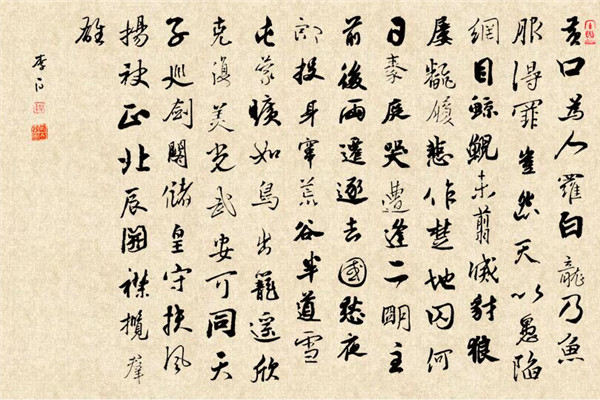 黃口為人羅白龍乃魚
服得罪豈怨天以愚陷
網目鯨鯢未翦滅豺狼
屢翻履悲作楚地囚何
日秦庭哭遭逢二明主
前後兩遷逐去國愁夜
郎投身竄荒谷半道雪
屯蒙曠如鳥出籠遙欣
克復美光武安可同天
子巡劍閣儲皇守扶風
揚袂正北辰開襟攬羣
雄
李白